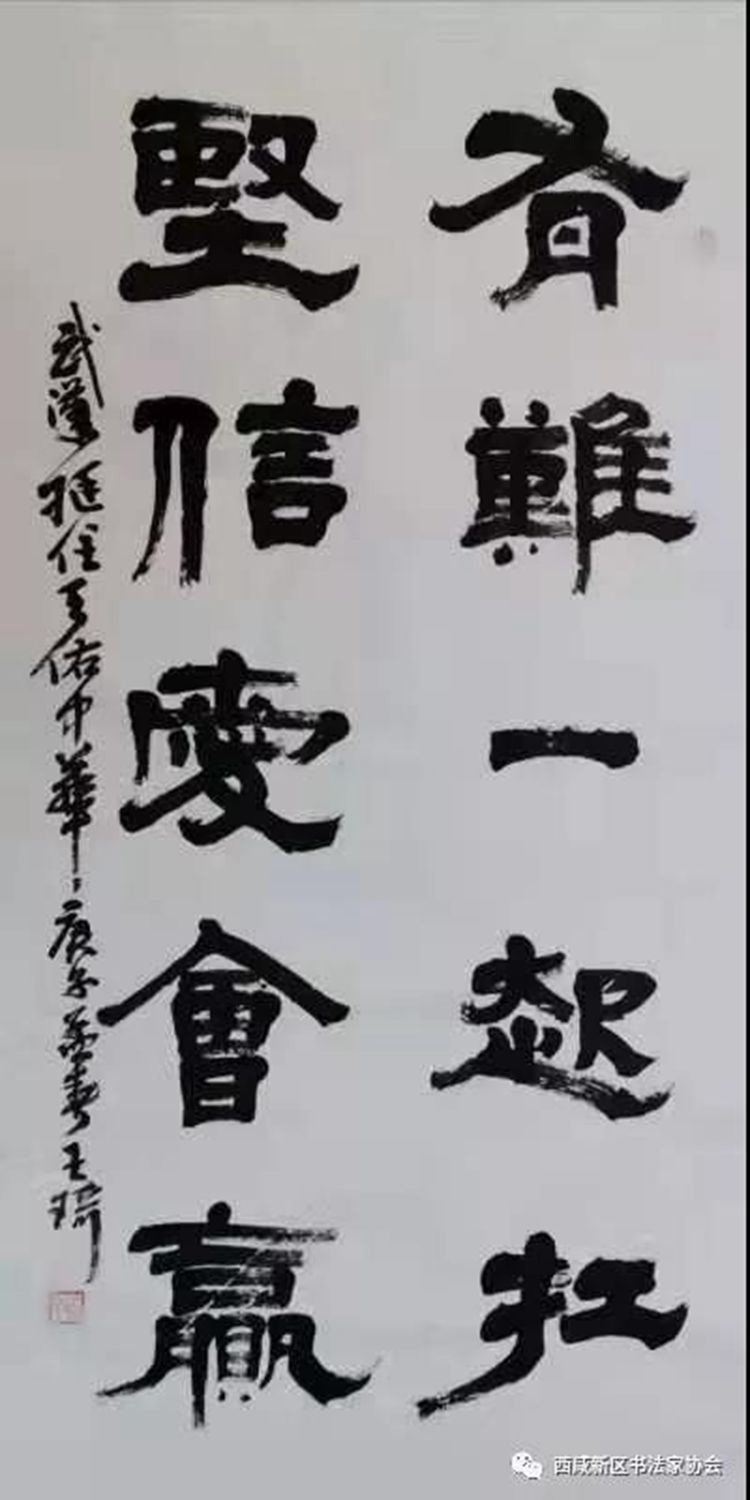 有難一起扛
堅信愛會贏
武漢挺住天佑中華庚子孟春王琦
西咸新区书法家协会